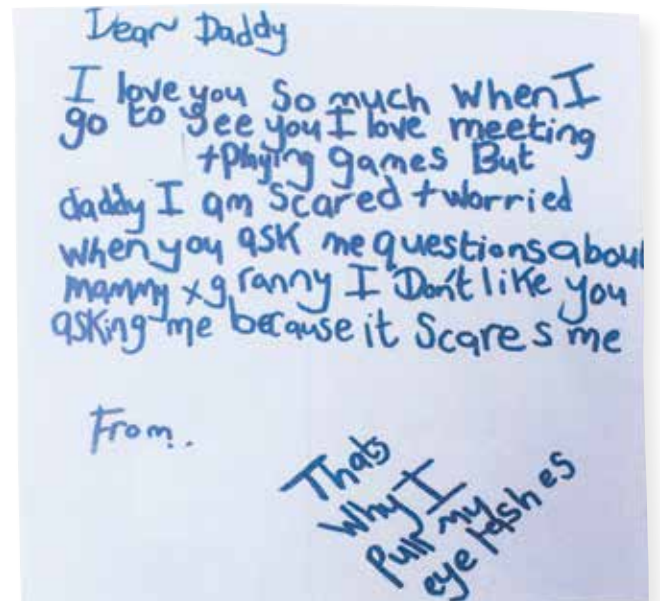 Dear Daddy
I love you So much when I
go to See you I love meeting
+Phying games But
daddy I am Scared + worried
when you ask me questions about
mammy x granny I Don't like you
asking me because it Scares me
From.
Thats
Why I
Pull my
eye lashes